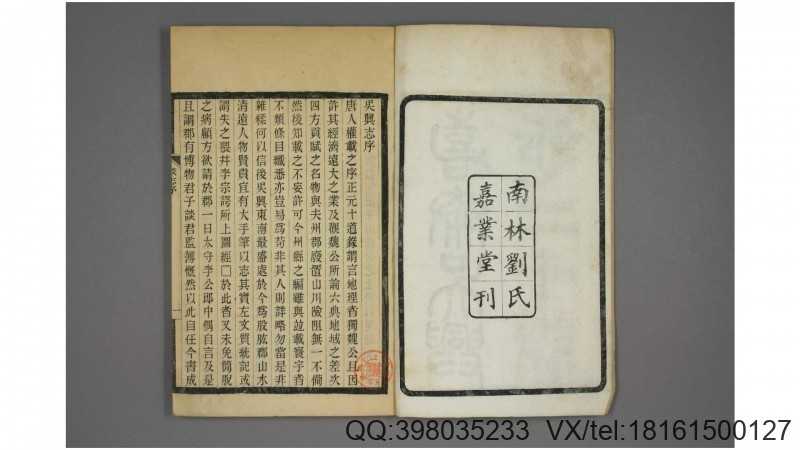 南林劉氏
嘉業堂刊
吳興志序
唐人權載之序正元十道錄謂言地理者獨魏公且因
許其經濟遠大之業及觀魏公所論六典地域之差次
四方貢賦之名物與夫州郡廢置山川險阻無一不備
然後知載之不妄許可今州縣之編雖與竝載寰宇者
不類條目纖悉亦豈易爲苟非其人則詳略勿當是非
雜糅何以信後吳興東南最盛處於今爲股肱郡山水
清遠人物賢貴宜有大手筆以志其實左文質統記或
謂失之猥并李宗諤所上圖經□於此者又未免簡脫
之病顧方欲請於郡一日太守李公郎中偶自言及是
且謂郡有博物君子談君監簿慨然以此自任今書成
QQ:398035233 VX/tel:18161500127